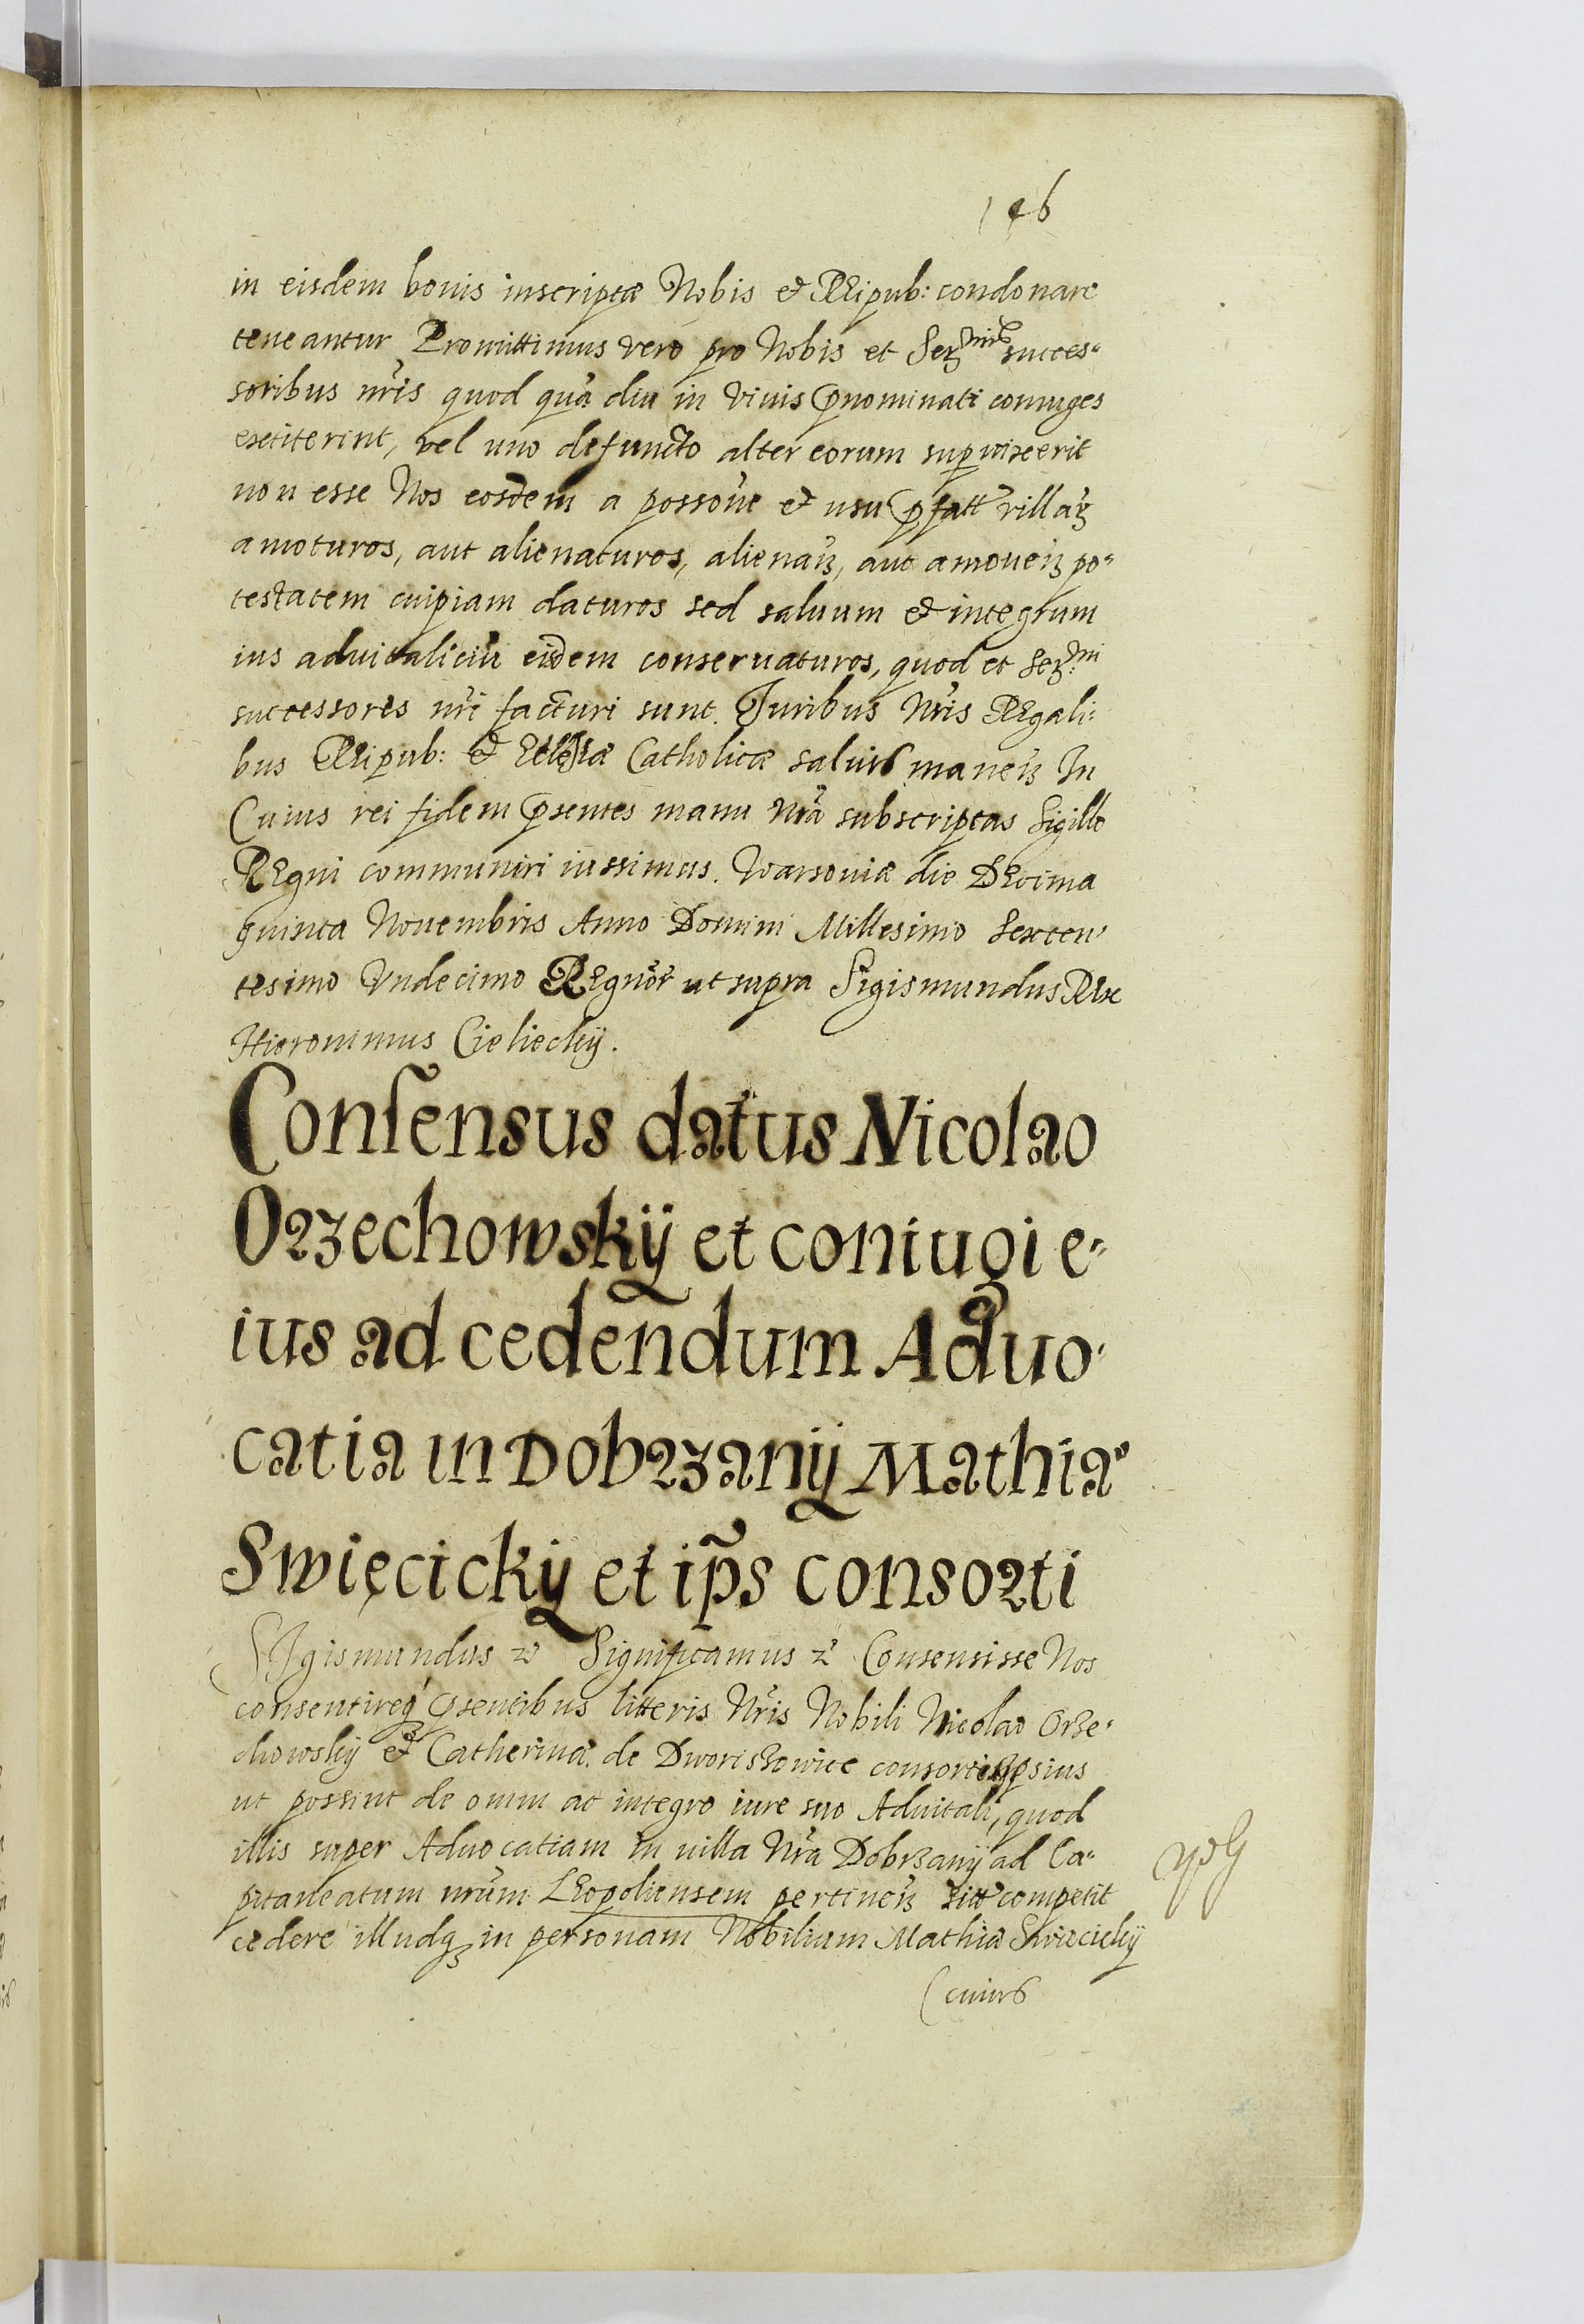 146
in eisdem bonis inscriptæ Nobis et REipub: condonare
teneantur Promittimus vero pro Nobis et Serᵐⁱˢ succes-
soribus nr̃is quod quã diu in vivis p̃nominati coniuges
extiterint, vel uno defuncto alter eorum supuixerit
non esse Nos eosdem a possõne et usu p̃fatt villaꝝ
amoturos, aut alienaturos, alienaꝝ, aut amoueꝝ po-
testatem cuipiam daturos sed saluum et integrum
ius aduitaliciũ eisdem conseruaturos, quod et Serᵐⁱ
successores nr̃i facturi sunt. Juribus Nr̃is REgali-
bus REipub: et Ecclesiæ Catholicæ saluis maneꝝ In
Cuius rei fidem p̃sentes manu Nr̃a subscriptas Sigillo
REgni communiri iussimus. Warsoviæ die DEcima
quinta Nouembris Anno Domini Millesimo Sexcen-
tesimo Vndecimo REgnor̃ ut supra Sigismundus REx
Hieronimus Cielieckÿ.
Consensus datus Nicolao
Orzechowskÿ et coniugi e-
ius ad cedendum Aduo-
catia in Dobrzanÿ Mathiæ
Swięcickÿ et ip̃s consorti
SIgismundus etc Significamus etc Consensisse Nos
consentireqꝫ p̃sentibus litteris Nr̃is Nobili Nicolao Orze-
chowskÿ et Catherinæ de Dworiszowice consorti ipsius
ut possint de omni ac integro iure suo Aduitali, quod
illis super Aduocatiam in uilla Nr̃a Dobrzanÿ ad Ca-
pitaneatum nr̃um LEopoliensem pertineꝝ competit
cedere illudqꝫ in personam Nobilium Mathiæ Swięcickÿ
cuius